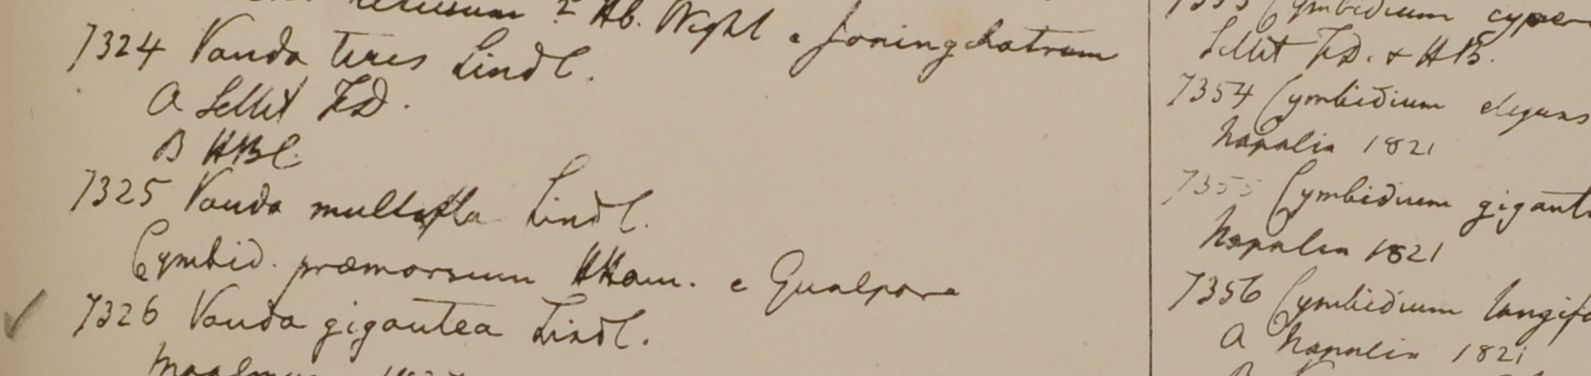 retusum ? Hb. Wight e
7324 Vanda teres Lindl.
A Sellet F.D.
B HBC.
7325 Vanda multiflora Lindl.
Cymbid. præmorsum HHam. e Gualpara
7326 Vanda gigantea Lindl.
7353 Cymbidium cyper
Sillet F.D. & HB.
7354 Cymbidium elegans
Napalia 1821
7355 Cymbidium gigant
Napalia 1821
7356 Cymbidium longifo
A Napalia 1821